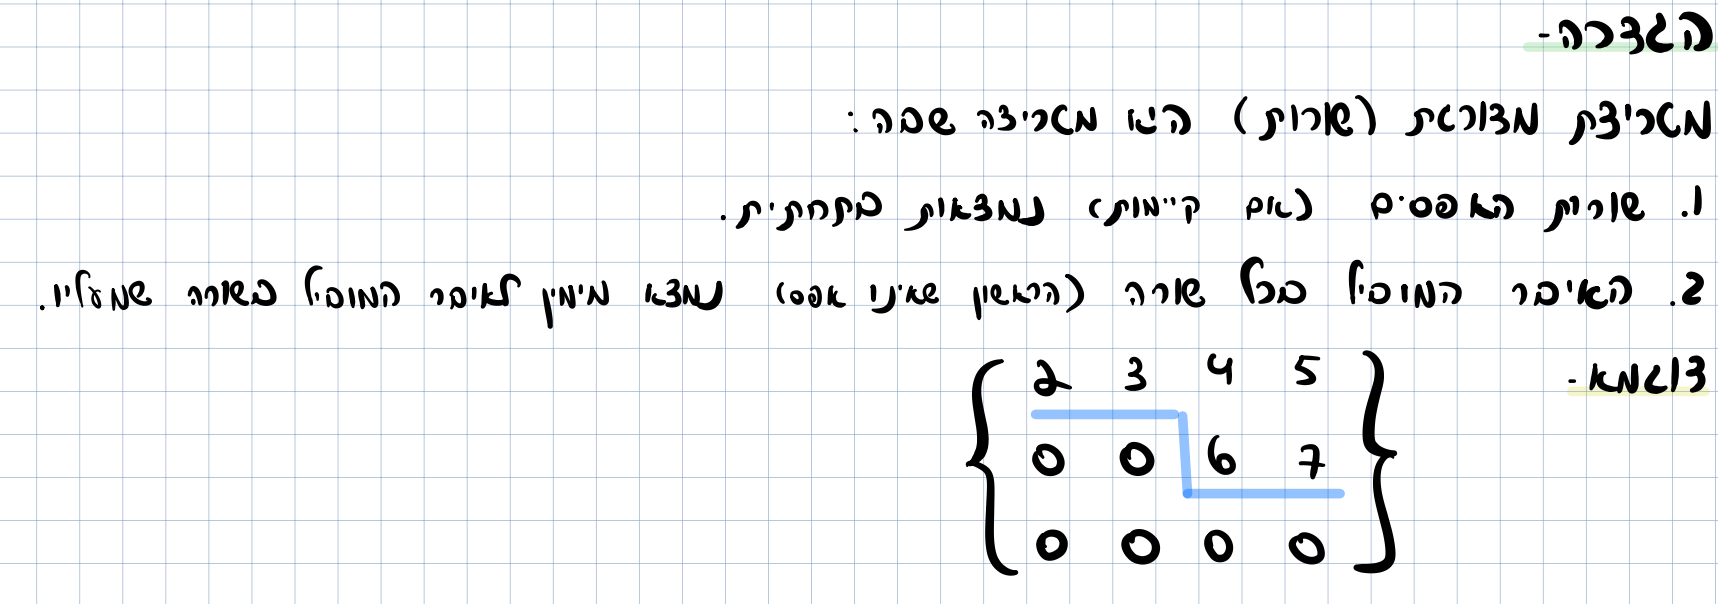 הגדרה-
מטריצת מדורגת (שורות) היא מטריצה שבה:
1. שורות האפסים (אם קיימות) נמצאות בתחתית.
2. האיבר המוביל בכל שורה (הראשון שאינו אפס) נמצא מימין לאיבר המוביל בשורה שמעליו.
דוגמא-
2 3 4 5
0 0 6 7
0 0 0 0